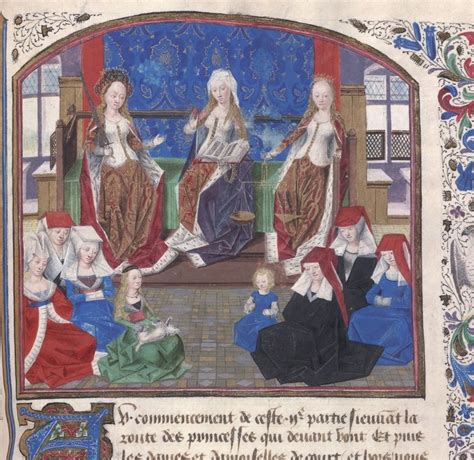 AV commencement de ceste .ije. partie sieuvent la
route des princesses qui devant vont Et puis
les dames et damoiselles de court et nous